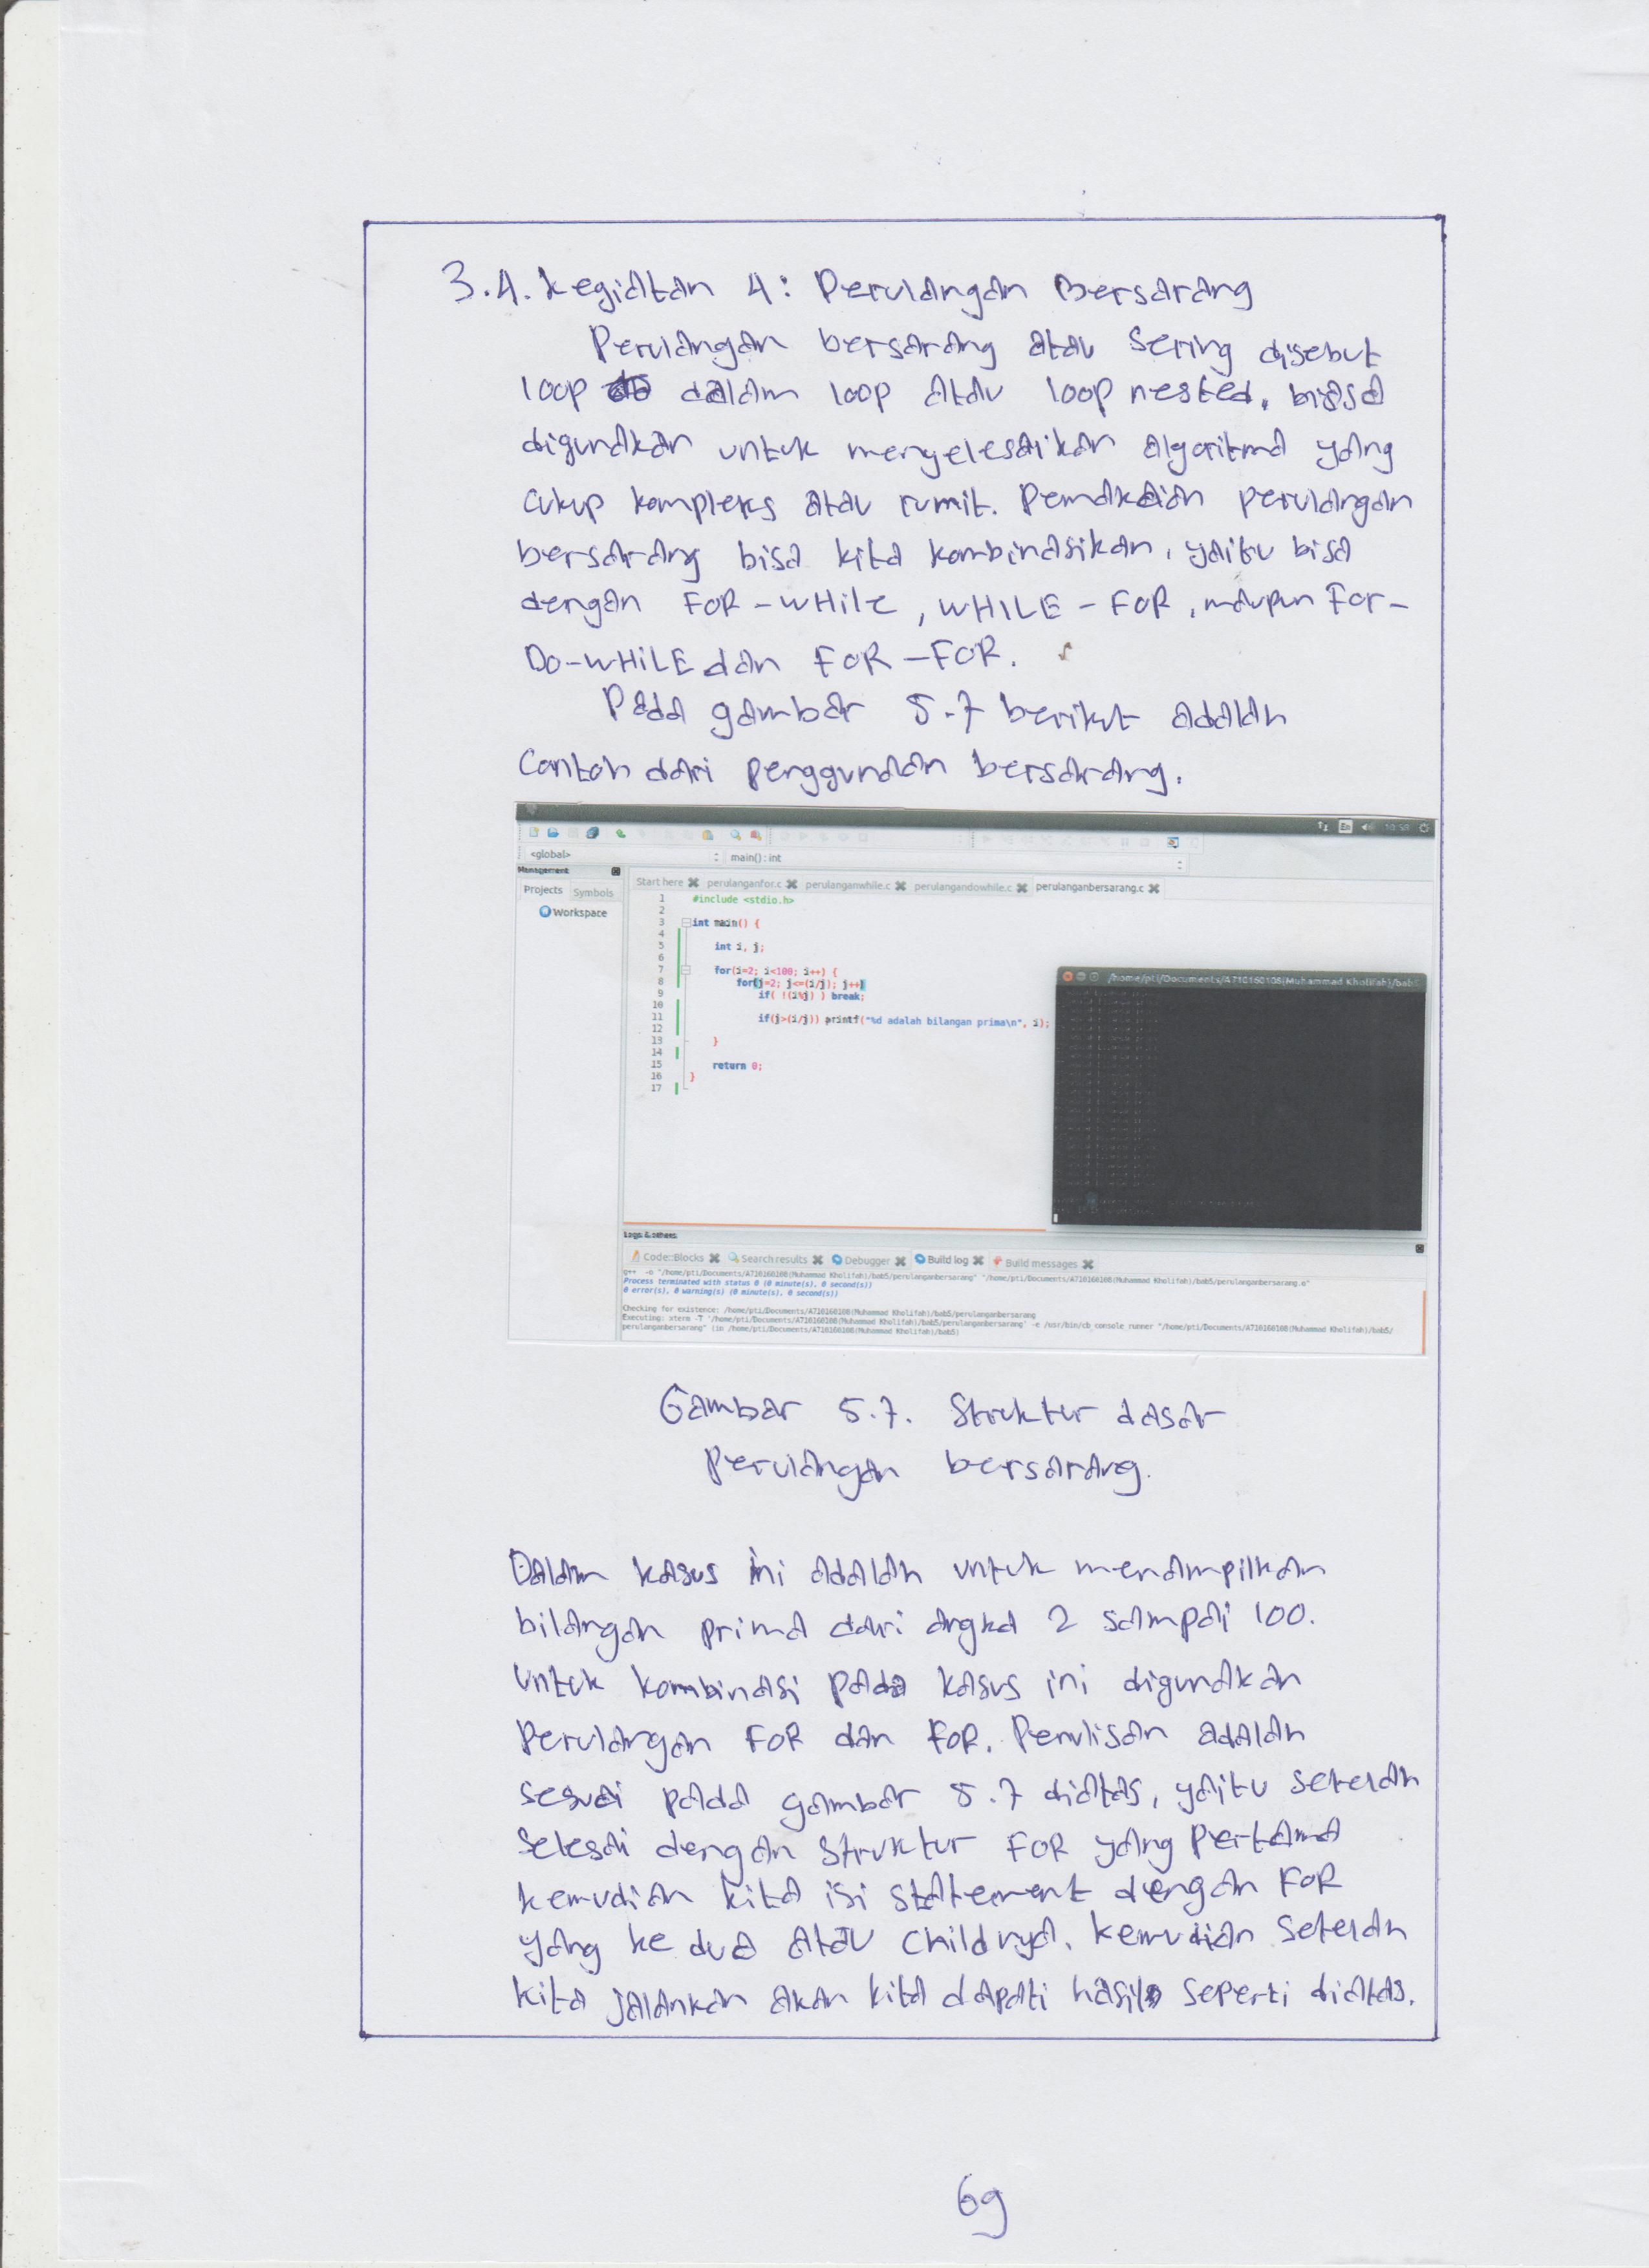 3.4. Kegiatan 4: Perulangan Bersarang
Perulangan bersarang atau sering disebut
loop dalam loop atau loop nested, biasa
digunakan untuk menyelesaikan algoritma yang
cukup kompleks atau rumit. Pemakaian perulangan
bersarang bisa kita kombinasikan, yaitu bisa
dengan FOR-WHilE, WHILE-FOR, maupun For-
Do-WHiLE dan FOR-FOR.
Pada gambar 5.7 berikut adalah
Contoh dari penggunaan bersarang.
En 10:58
<global> main() : int
Management
Projects Symbols
Workspace
Start here perulanganfor.c perulanganwhile.c perulangandowhile.c perulanganbersarang.c
1 #include <stdio.h>
2
3 int main() {
4
5 int i, j;
6
7 for(i=2; i<100; i++) {
8 for(j=2; j<=(i/j); j++)
9 if( !(i%j) ) break;
10
11 if(j>(i/j)) printf("%d adalah bilangan prima\n", i);
12
13 }
14
15 return 0;
16 }
17
/home/pti/Documents/A710160108(Muhammad Kholifah)/bab5
Logs & others
Code::Blocks Search results Debugger Build log Build messages
g++ -o "/home/pti/Documents/A710160108(Muhammad Kholifah)/bab5/perulanganbersarang" "/home/pti/Documents/A710160108(Muhammad Kholifah)/bab5/perulanganbersarang.o"
Process terminated with status 0 (0 minute(s), 0 second(s))
0 error(s), 0 warning(s) (0 minute(s), 0 second(s))
Checking for existence: /home/pti/Documents/A710160108(Muhammad Kholifah)/bab5/perulanganbersarang
Executing: xterm -T '/home/pti/Documents/A710160108(Muhammad Kholifah)/bab5/perulanganbersarang' -e /usr/bin/cb_console_runner "/home/pti/Documents/A710160108(Muhammad Kholifah)/bab5/
perulanganbersarang" (in /home/pti/Documents/A710160108(Muhammad Kholifah)/bab5)
Gambar 5.7. Struktur dasar
Perulangan bersarang.
Dalam kasus ini adalah untuk menampilkan
bilangan prima dari angka 2 sampai 100.
Untuk kombinasi pada kasus ini digunakan
Perulangan FOR dan FOR. Penulisan adalah
sesuai pada gambar 5.7 diatas, yaitu setelah
selesai dengan struktur FOR yang pertama
kemudian kita isi statement dengan FOR
yang ke dua atau childnya. kemudian setelah
kita jalankan akan kita dapati hasil seperti diatas.
69